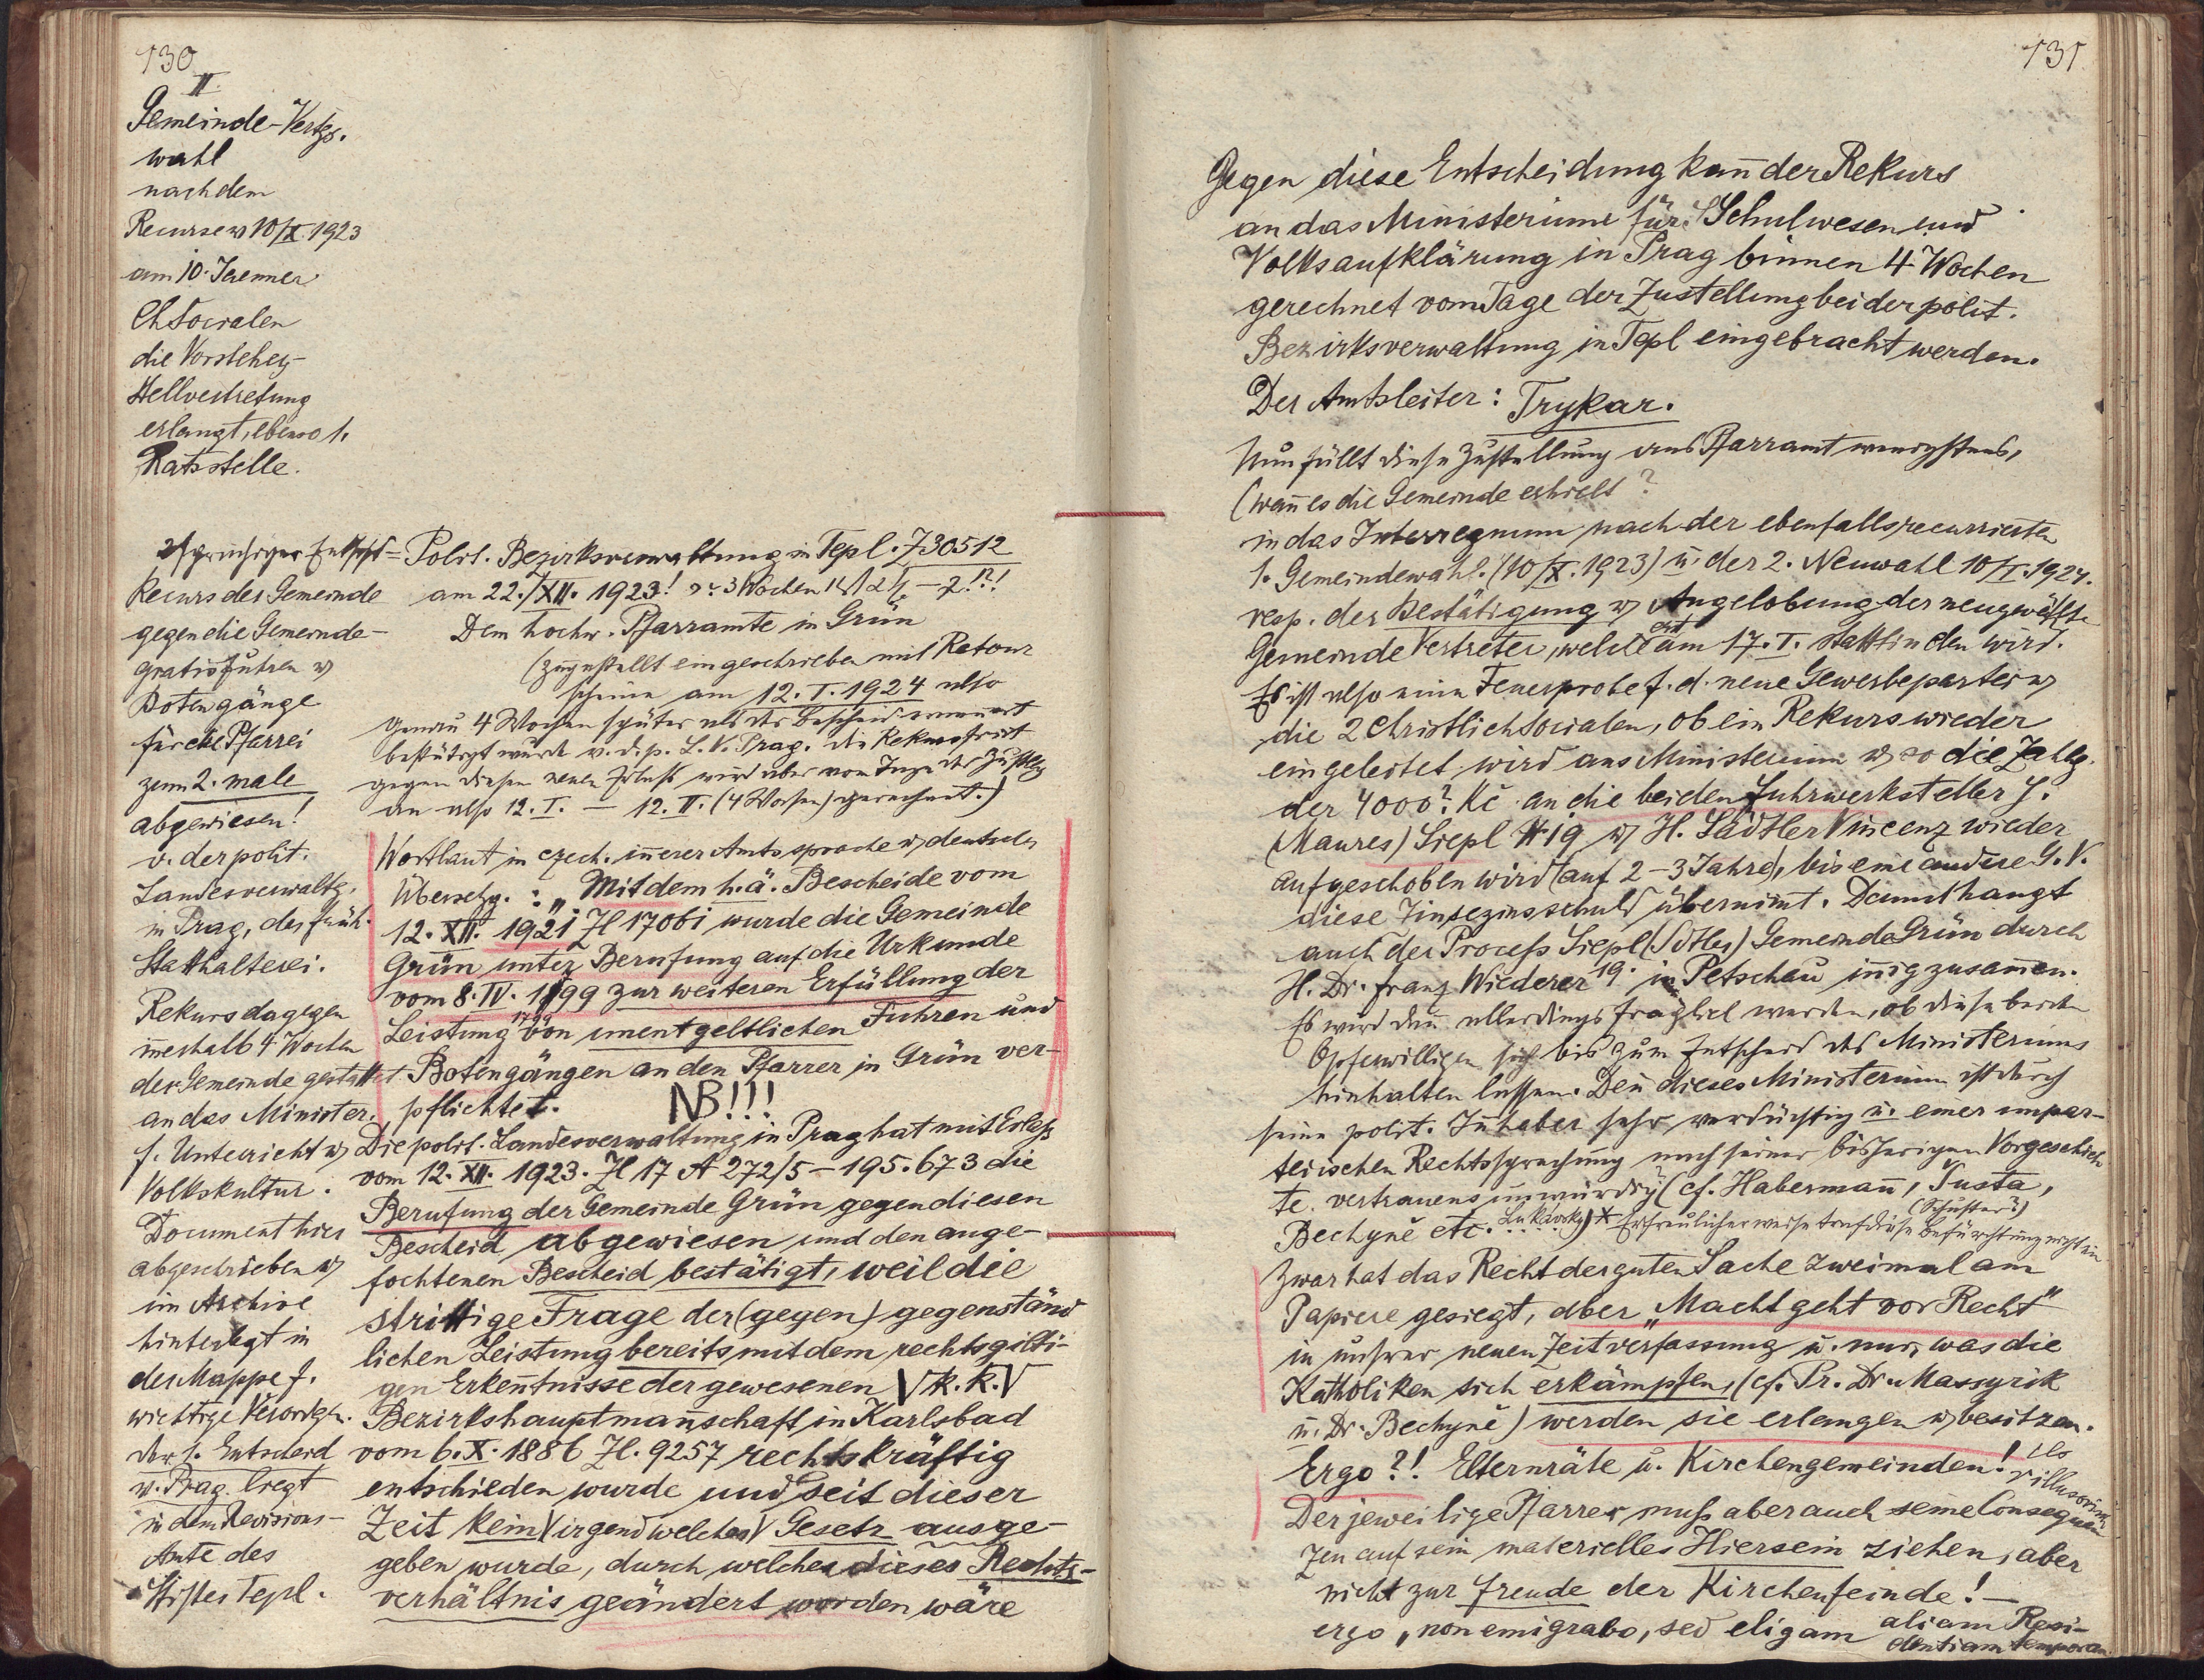 130
II.
Gemeinde-Vertgs.
wahl
nach dem
Recurse v 10/X 1923
am 10. Jaenner
Ch Socialen
die Vorsteher-
stellvertretung
erlangt, ebenso 1.
Ratsstelle.
Recurs der Gemeinde
gegen die Gemeinde-
gratisfuhren u
Botengänge
für die Pfarrei
zum 2. male
abgewiesen!
v. der polit.
Landesverwaltg.
in Prag, der früh.
Statthalterei.
Rekurs dagegen
innerhalb 4 Wochen
der Gemeinde gestattet
an das Minister.
f. Unterricht u
Volkskultur.
Document hier
abgeschrieben u
im Archive
hinterlegt in
der Mappe f.
wichtige Verordgn.
Der 1. Entscheid
v. Prag liegt
in dem Revisions-
Amte des
Stiftes Tepl.
Polit. Bezirksverwaltung in Tepl. Z 30512
am 22./XII. 1923! 3 Wochen
Dem hochw. Pfarramte in Grün
(zugestellt eingeschrieben mit Retour
scheine am 12. I. 1924 also
genau 4 Wochen später als der Bescheid
bestätigt wurde v. d. p. L. V. Prag. Die Rekursfrist
gegen diesen neuen Erlass wird aber vom Tage der Zustllg
an also 12. I. — 12. II. (4 Wochen) gerechnet.)
Wortlaut in czech. innerer Amtssprache u deutscher
Übersetzg. : „Mit dem h.ä. Bescheide vom
12. XII. 1921 Zl 17061 wurde die Gemeinde
Grün unter Berufung auf die Urkunde
vom 8. IV. 1799 zur weiteren Erfüllung der
1799
Leistung von unentgeltlichen Fuhren und
Botengängen an den Pfarrer in Grün ver-
pflichtet. NB!!!
Die polit. Landesverwaltung in Prag hat mit Erlass
vom 12. XII. 1923. Zl 17 A 272/5 – 195.673 die
Berufung der Gemeinde Grün gegen diesen
Bescheid abgewiesen und den ange-
fochtenen Bescheid bestätigt, weil die
strittige Frage der (gegen) gegenständ
lichen Leistung bereits mit dem rechtsgilti-
gen Erkenntnisse der gewesenen k. k.
Bezirkshauptmannschaft in Karlsbad
vom 6. X. 1886 Zl. 9257 rechtskräftig
entschieden wurde und seit dieser
Zeit kein irgendwelches Gesetz ausge-
geben wurde, durch welches dieses Rechts-
verhältnis geändert worden wäre
131
Gegen diese Entscheidung kann der Rekurs
an das Ministerium für Schulwesen und
Volksaufklärung in Prag binnen 4 Wochen
gerechnet vom Tage der Zustellung bei der polit.
Bezirksverwaltung in Tepl eingebracht werden.
Der Amtsleiter: Trykar.
Nun fällt diese Zustellung ans Pfarramt wenigstens,
(wann es die Gemeinde erhielt?
in das Interregnum nach der ebenfalls recurrierten
1. Gemeindewahl. (10/X. 1923) u. der 2. Neuwahl 10/I. 1924.
resp. der Bestätigung u Angelobung der neugewählt.
Gemeinde Vertreter, welche erst am 17. I. stattfinden wird.
Es ist also eine Feuerprobe f. d. neue Gewerbepartei u
die 2 Christlichsocialen, ob ein Rekurs wieder
eingeleitet wird ans Ministerium u so die Zahlg.
der 4000? Kč an die beiden Fuhrwerksteller J.
(Maures) Siepl # 19 u H. Sädtler Vincenz wieder
aufgeschoben wird (auf 2–3 Jahre), bis eine andere G. V.
diese Zinseszinsschuld übernimt. Damit hangt
auch der Process Siepl (Sdtler) Gemeinde Grün durch
H. Dr. Franz Wiederer in Petschau innig zusammen.
Es wird dann allerdings fraglich werden, ob diese beiden
Opferwilligen sich bis zum Entscheid des Ministeriums
hinhalten lassen. Denn dieses Ministerium ist durch
seine polit. Inhaber sehr verdächtig u. einer unpar-
teiischen Rechtssprechung nach seiner bisherigen Vorgeschich
te. vertrauensunwürdig (cf. Habermann, Šusta,
(Schuster?)
Bechyně etc. Lukavsky) * Erfreulicherweise traf diese Befürchtung nicht ein
Zwar hat das Recht der guten Sache zweimal am
Papiere gesiegt, aber „Macht geht vor Recht"
in unsrer neuen Zeitverfassung u. nur, was die
Katholiken sich erkämpfen, (cf. Pr. Dr. Massyrik
u. Dr. Bechyně) werden sie erlangen u besitzen.
Ergo?! Elternräte u. Kirchengemeinden!
Der jeweilige Pfarrer muss aber auch seine Consequen
zen auf sein materielles Hiersein ziehen, aber
nicht zur Freude der Kirchenfeinde! —
ergo „non emigrabo, sed eligam aliam Resi-
dentiam temporan.